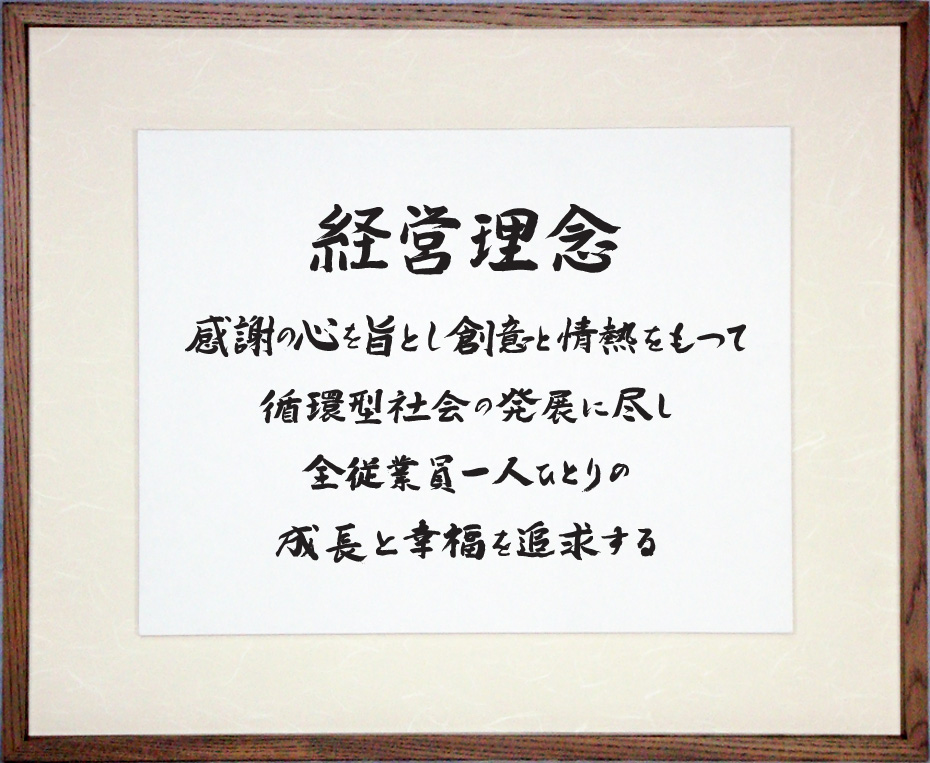 経営理念
感謝の心を旨とし創意と情熱をもって
循環型社会の発展に尽し
全従業員一人ひとりの
成長と幸福を追求する